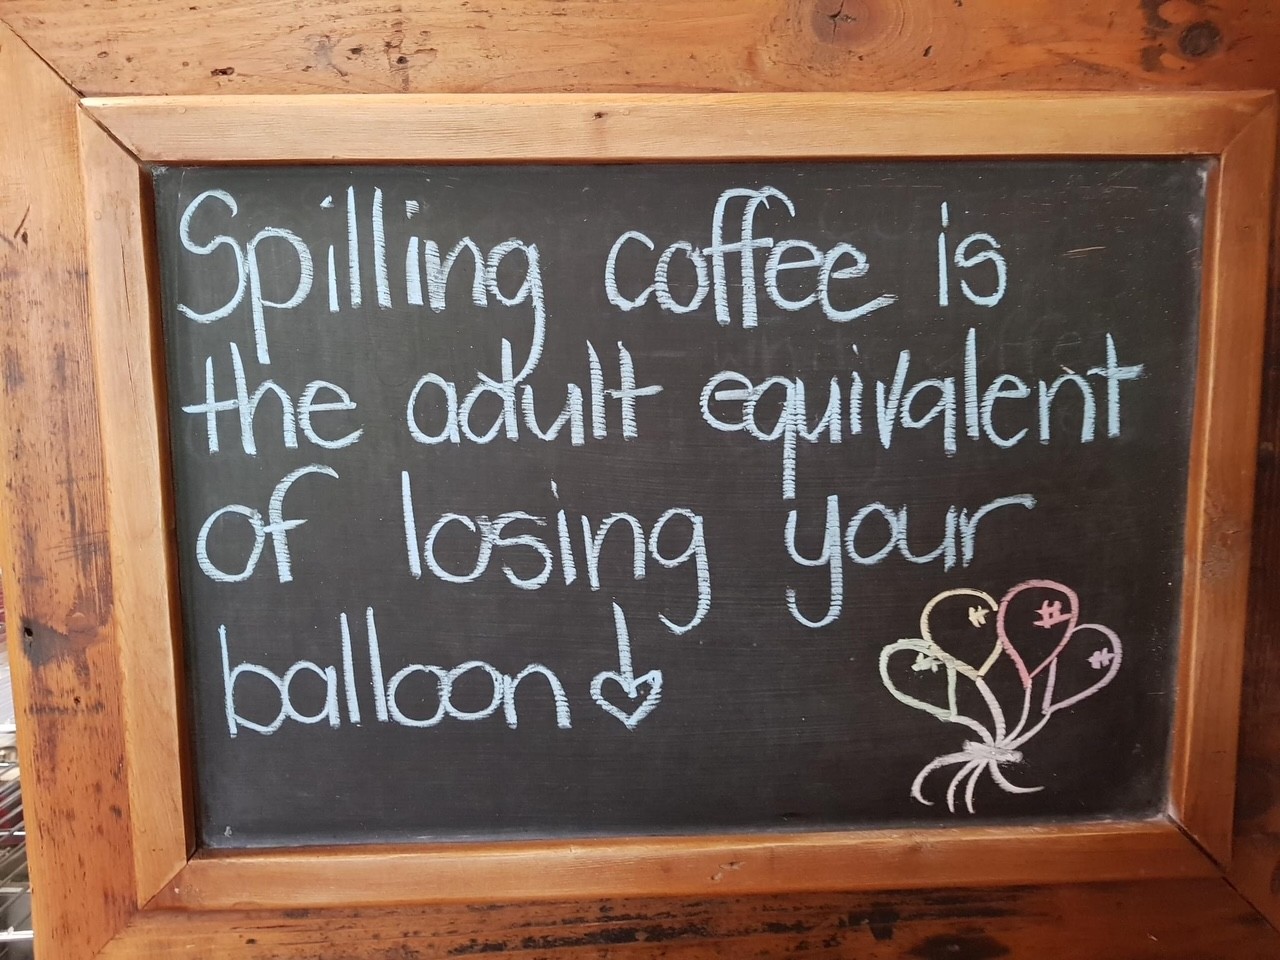 Spilling coffee is
the adult equivalent
of losing your
balloon